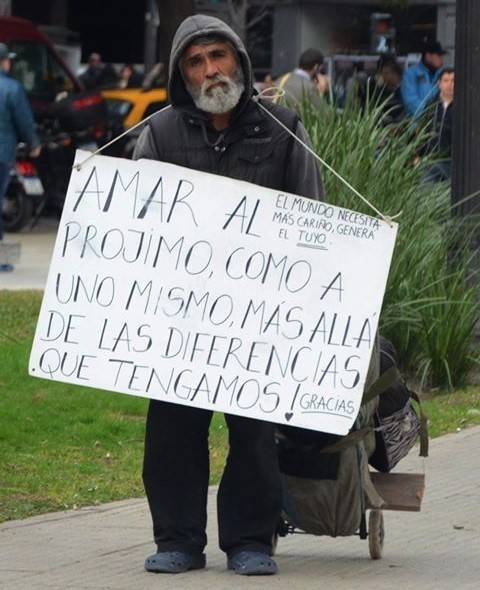 AMAR AL
EL MUNDO NECESITA
MÁS CARIÑO, GENERA
EL TUYO.
PROJIMO, COMO A
UNO MISMO, MÁS ALLÁ
DE LAS DIFERENCIAS
QUE TENGAMOS!
GRACIAS